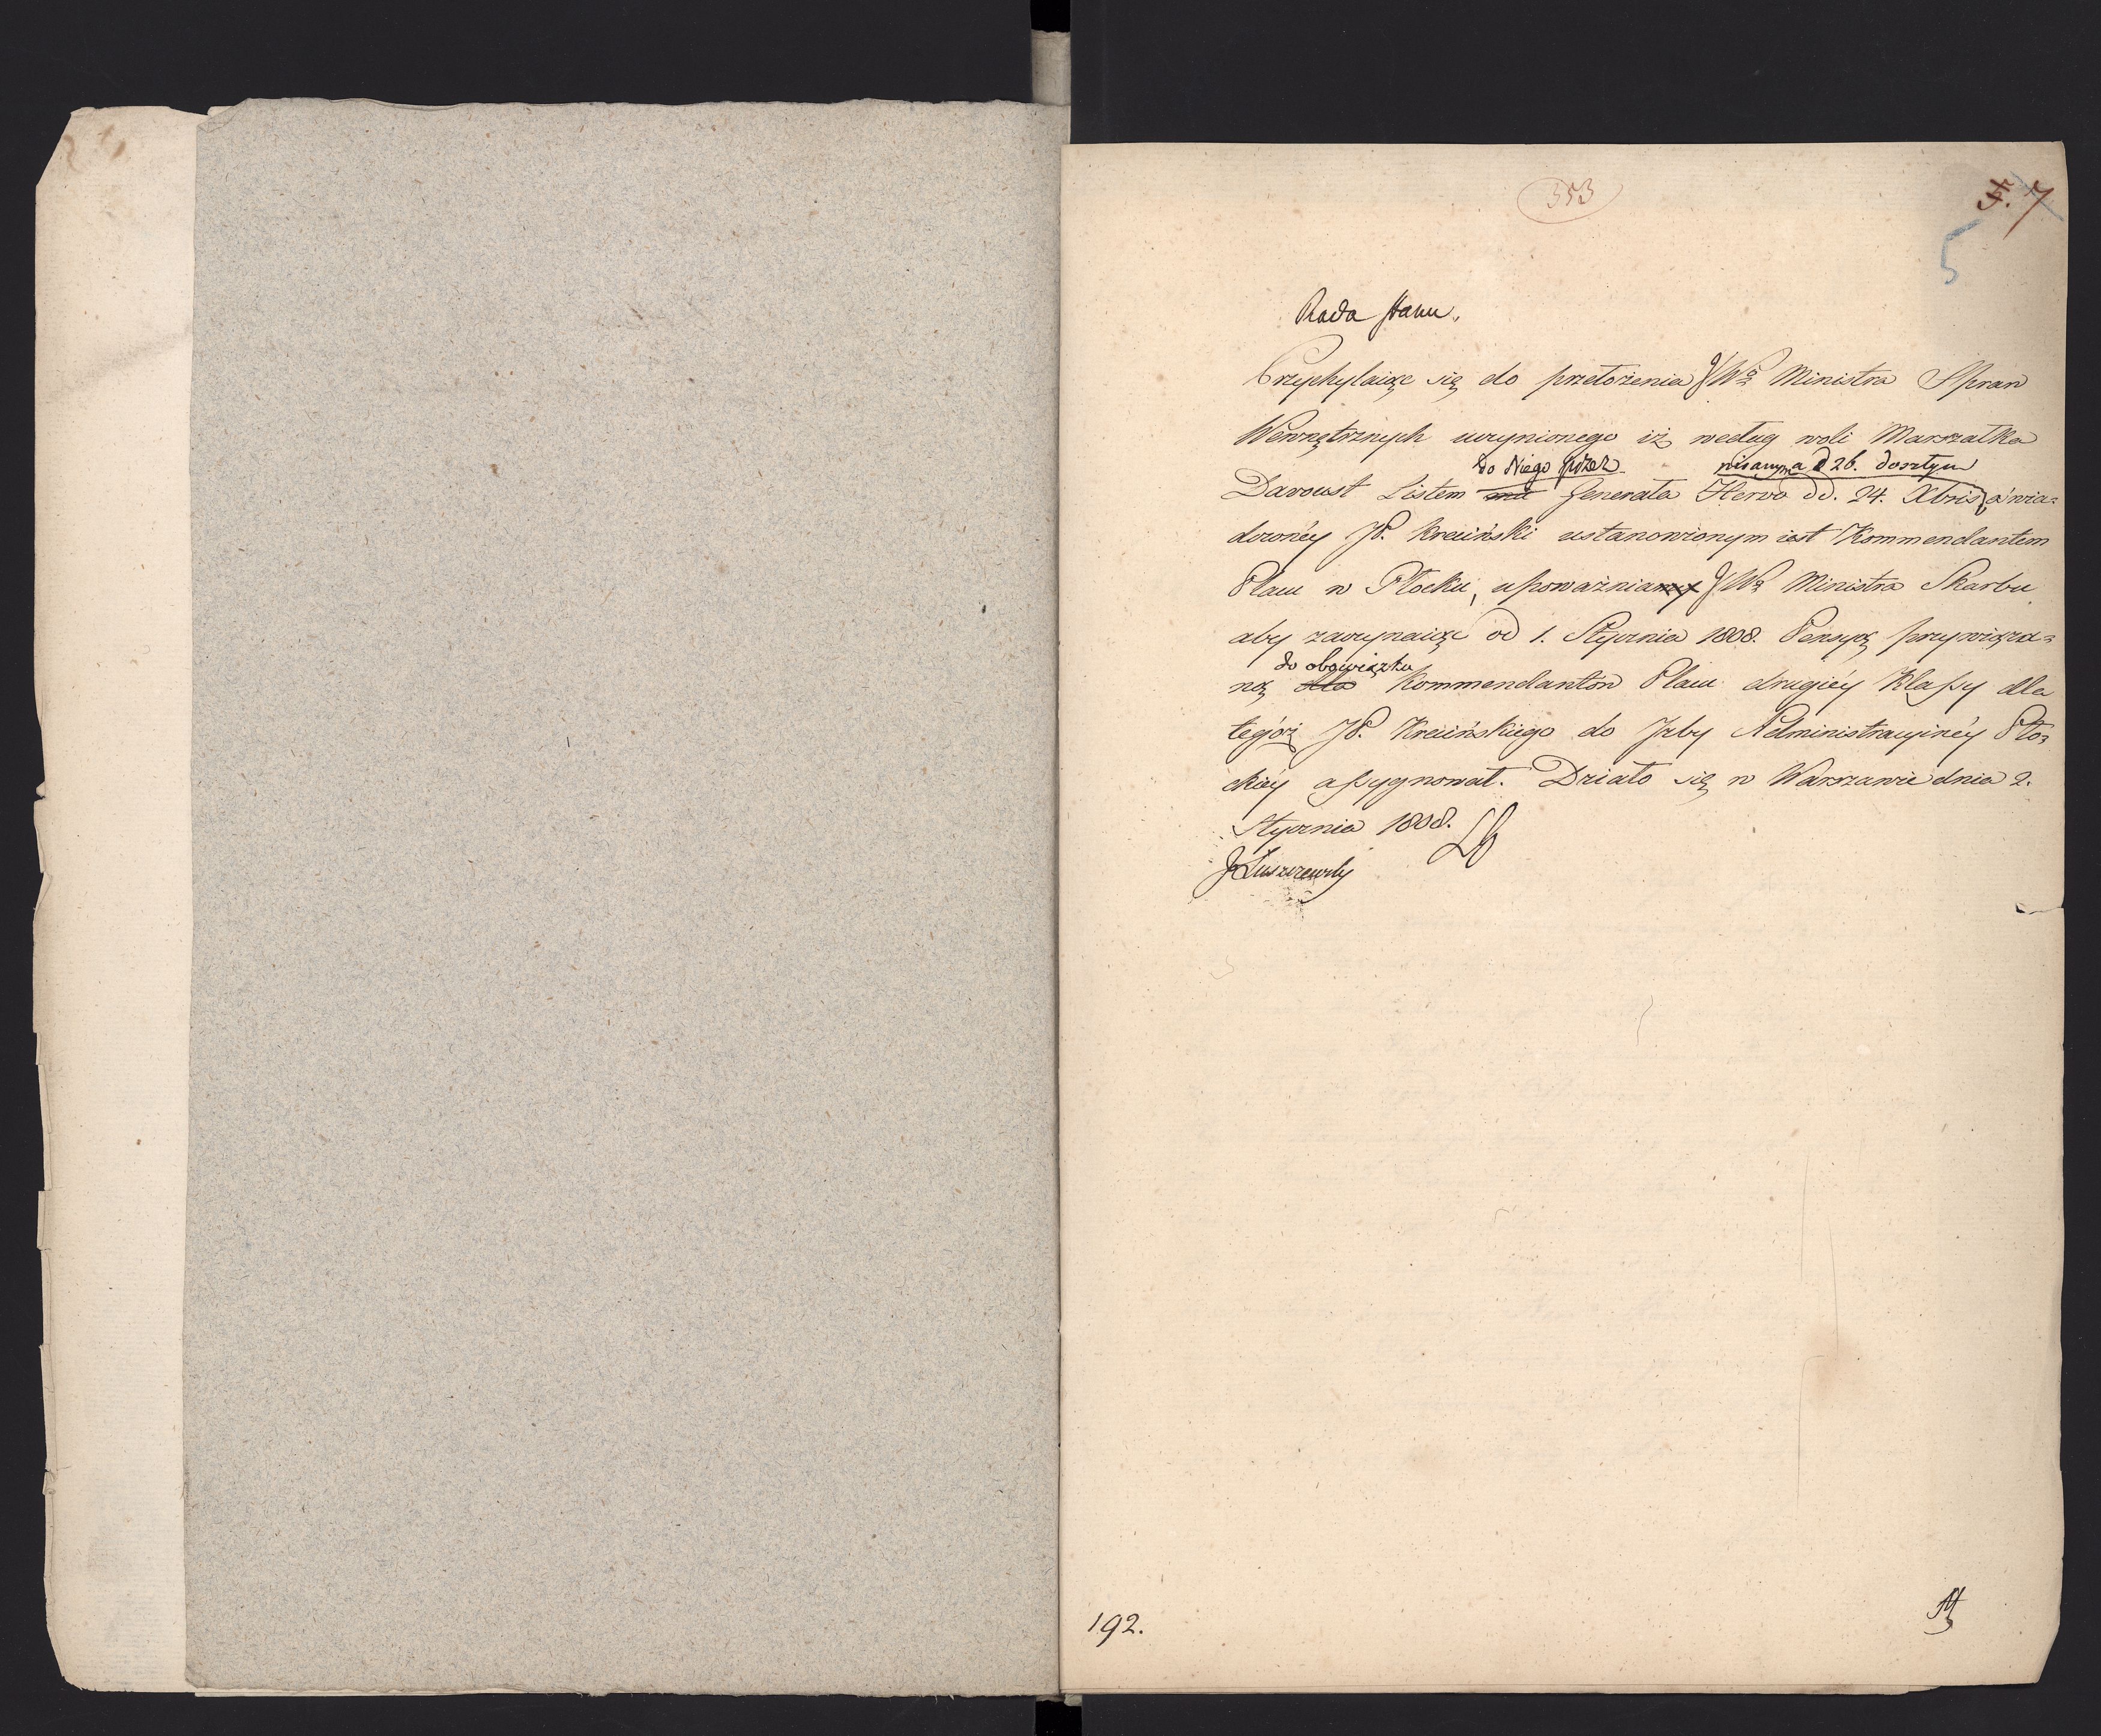 353
7
5
Rada Stanu.
Przychylaiąc się do przełożenia JW? Ministra Spraw
Wewnętrznych uczynionego iż według woli Marszałka
do Niego przez pisanym a d 26. doszłym
Davoust Listem mu Generała Hervo dd. 24. Xbris oświa-
dczonéy JP. Kreciński ustanowionym iest Kommendantem
Placu w Płocku, upoważniamy JWo Ministra Skarbu
aby zaczynaiąc od 1. Stycznia 1808. Pensyą przywiąza-
do obowiązku
ną dla Kommendantów Placu drugiéy Klassy dla
tegóż JP. Krecińskiego do Izby Administracyinéy Pło-
ckiéy assygnował. Działo się w Warszawie dnia 2.
Stycznia 1808.
J Łuszczewsky
192.